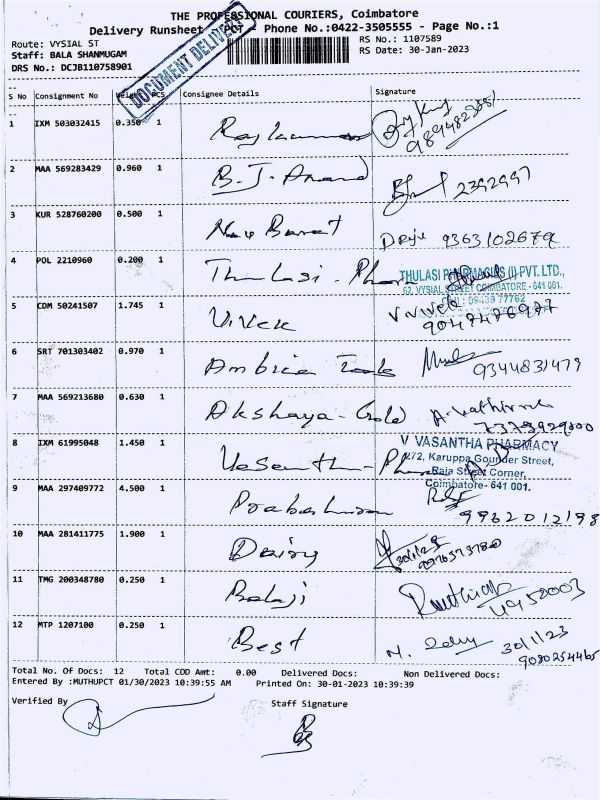 THE PROFESSIONAL COURIERS, Coimbatore
Delivery Runsheet - PCT - Phone No.:0422-3505555 - Page No.:1
Route: VYSIAL ST
Staff: BALA SHANMUGAM
DRS No.: DCJB110758901
RS No.: 1107589
RS Date: 30-Jan-2023
DOCUMENT DELIVERY
S No Consignment No Weight PCS Consignee Details Signature
1 IXM 503032415 0.350 1 Rajkumar
2 MAA 569283429 0.960 1 B.J. Anand 2392997
3 KUR 528760200 0.500 1 Nav Barat 9363102679
4 POL 2210960 0.200 1 Thulasi - Pharma
THULASI PHARMACIES (I) PVT. LTD.,
62, VYSIAL STREET COIMBATORE - 641 001.
5 CDM 50241507 1.745 1 Vivek Vivek
6 SRT 701303402 0.970 1 Ambica 9344831479
7 MAA 569213680 0.630 1 Akshaya - Gold
8 IXM 61995048 1.450 1 Vasantha - Pharma
V VASANTHA PHARMACY
272, Karuppa Gounder Street,
Raja Street Corner,
Coimbatore - 641 001.
9 MAA 297409772 4.500 1 Prabakaran 9962012198
10 MAA 281411775 1.900 1 Dairy
11 TMG 200348780 0.250 1 Balaji
12 MTP 1207100 0.250 1 Best 30/1/23
9080254465
Total No. Of Docs: 12 Total COD Amt: 0.00 Delivered Docs: Non Delivered Docs:
Entered By :MUTHUPCT 01/30/2023 10:39:55 AM Printed On: 30-01-2023 10:39:39
Verified By
Staff Signature